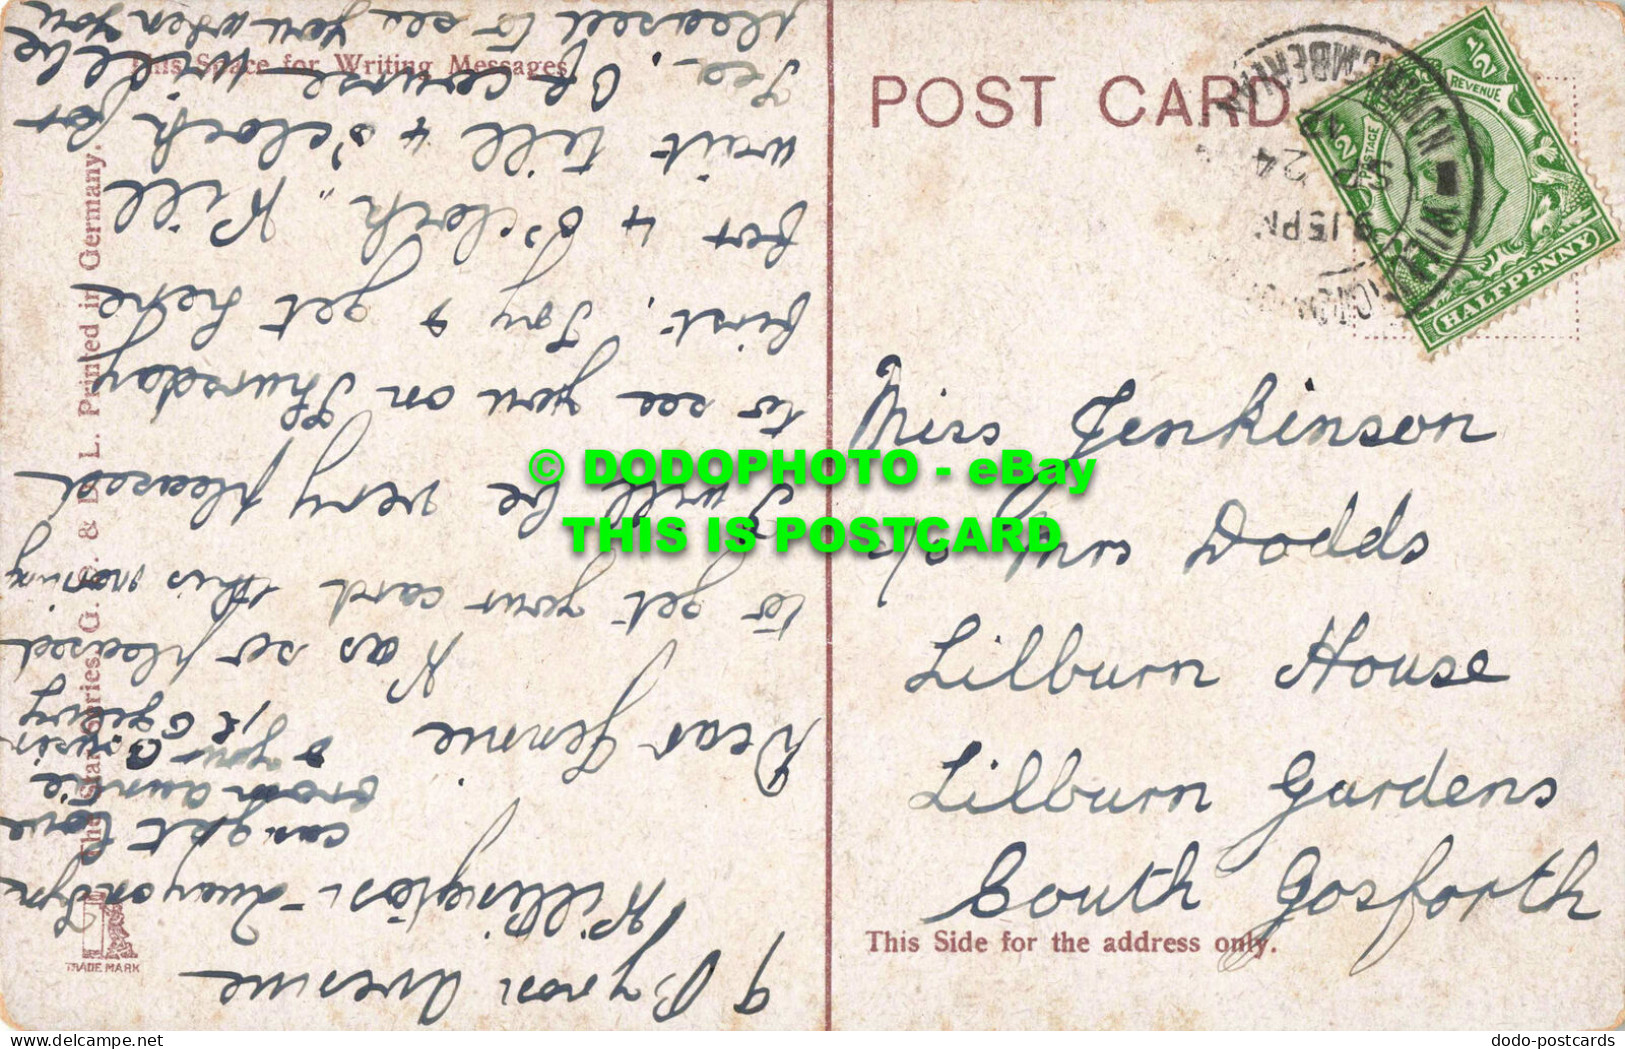 This Space for Writing Messages
POST CARD
The Stationeries G. D. & D. L. Printed in Germany.
TRADE MARK
This Side for the address only.
½
½
POSTAGE
REVENUE
HALFPENNY
WILLINGTON QUAY
NORTHUMBERLAND
9.15 PM
SP 24
12
Miss Jenkinson
c/o Mrs Dodds
Lilburn House
Lilburn Gardens
South Gosforth
9 Byron Avenue
Willington-Quay on Tyne
Dear Jennie
Was so pleased
to get your card this morning
I will be very pleased
to see you on Thursday
first. Try & get here
for 4 O'clock, Will
wait till 4 o'clock for
Tea. Of course will be
pleased to see you when you
can get love
from auntie
& your Cousin
© DODOPHOTO - eBay
THIS IS POSTCARD
delcampe.net
dodo-postcards